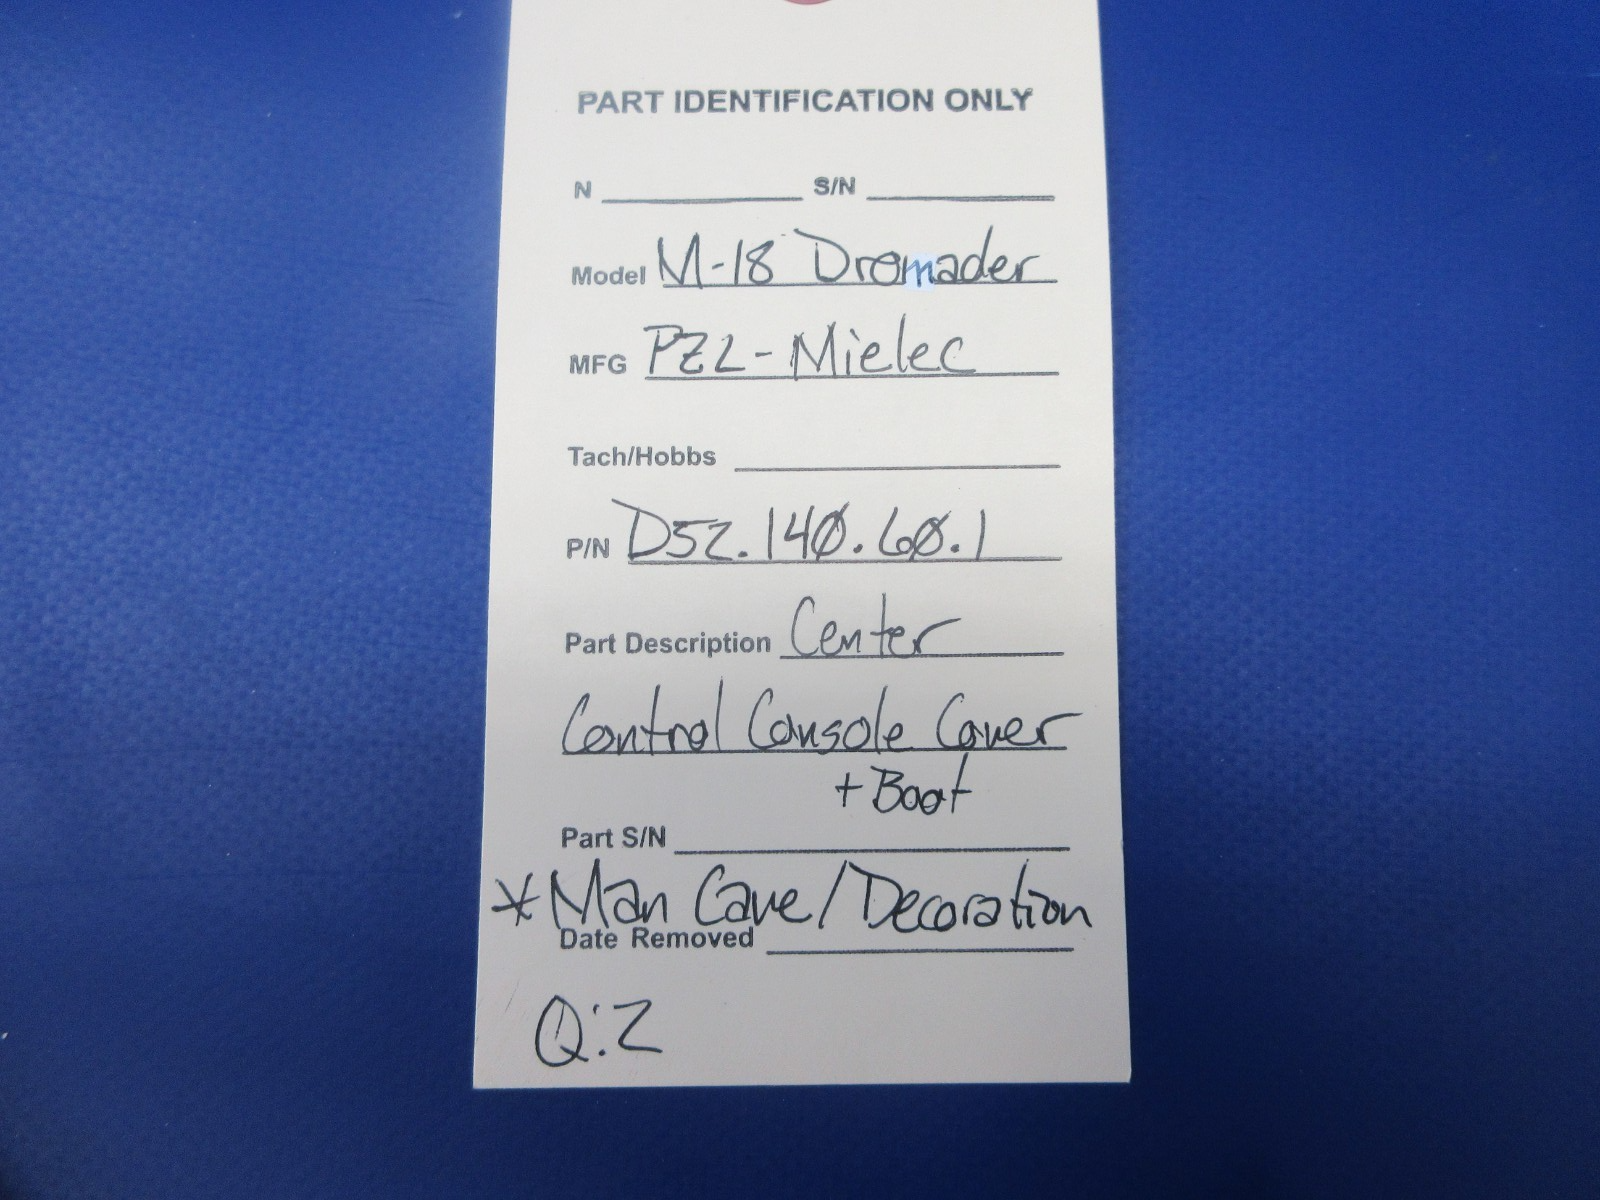 PART IDENTIFICATION ONLY
N S/N
Model M-18 Dromader
MFG PZL-Mielec
Tach/Hobbs
P/N D52.140.60.1
Part Description Center
Control Console Cover
+ Boot
Part S/N
* Man Cave/Decoration
Date Removed
Q:2